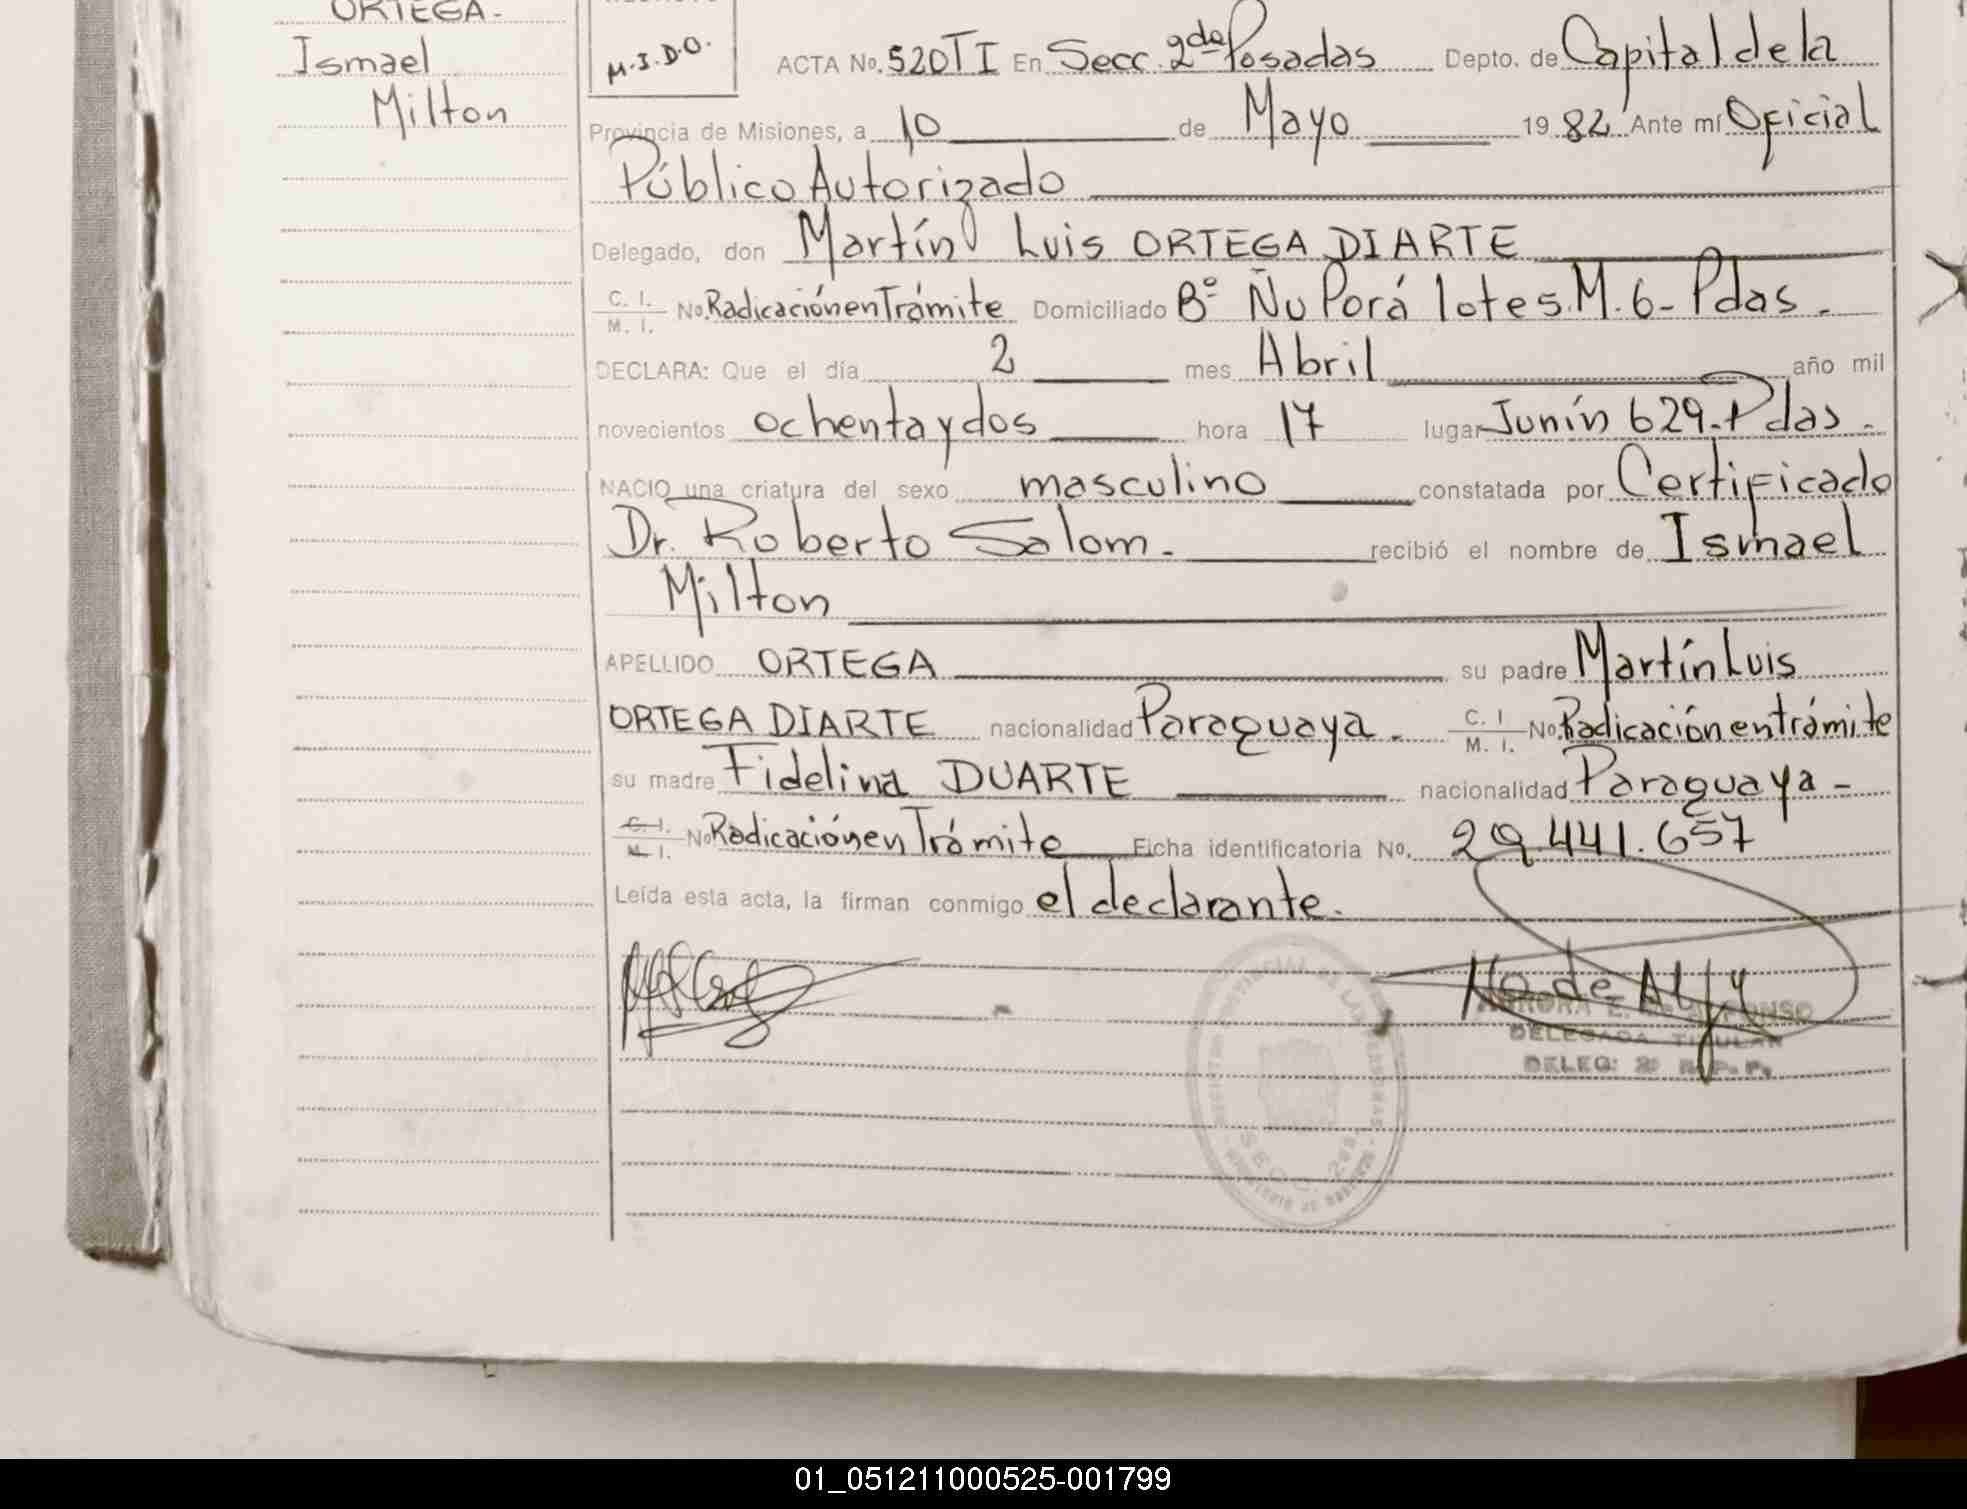 ORTEGA-
Ismael
Milton
M.I.D.O.
ACTA No. 520 TI En Secc. 2da Posadas Depto. de Capital de la
Provincia de Misiones, a 10 de Mayo 19 82 Ante mí Oficial
Público Autorizado
Delegado, don Martín Luis ORTEGA DIARTE
C. I. M. I. No. Radicación en Trámite Domiciliado Bº Ñu Porá lotes M. 6- Pdas.
DECLARA: Que el día 2 mes Abril año mil
novecientos ochenta y dos hora 17 lugar Junín 629-Pdas.
NACIO una criatura del sexo masculino constatada por Certificado
Dr. Roberto Salom. recibió el nombre de Ismael
Milton
APELLIDO ORTEGA su padre Martín Luis
ORTEGA DIARTE nacionalidad Paraguaya. C. I M. I. No. Radicación en trámite
su madre Fidelina DUARTE nacionalidad Paraguaya-
C. I. M. I. No Radicación en Trámite Ficha identificatoria No. 29.441.657
Leída esta acta, la firman conmigo el declarante.
DELEGADA TITULAR
01_051211000525-001799